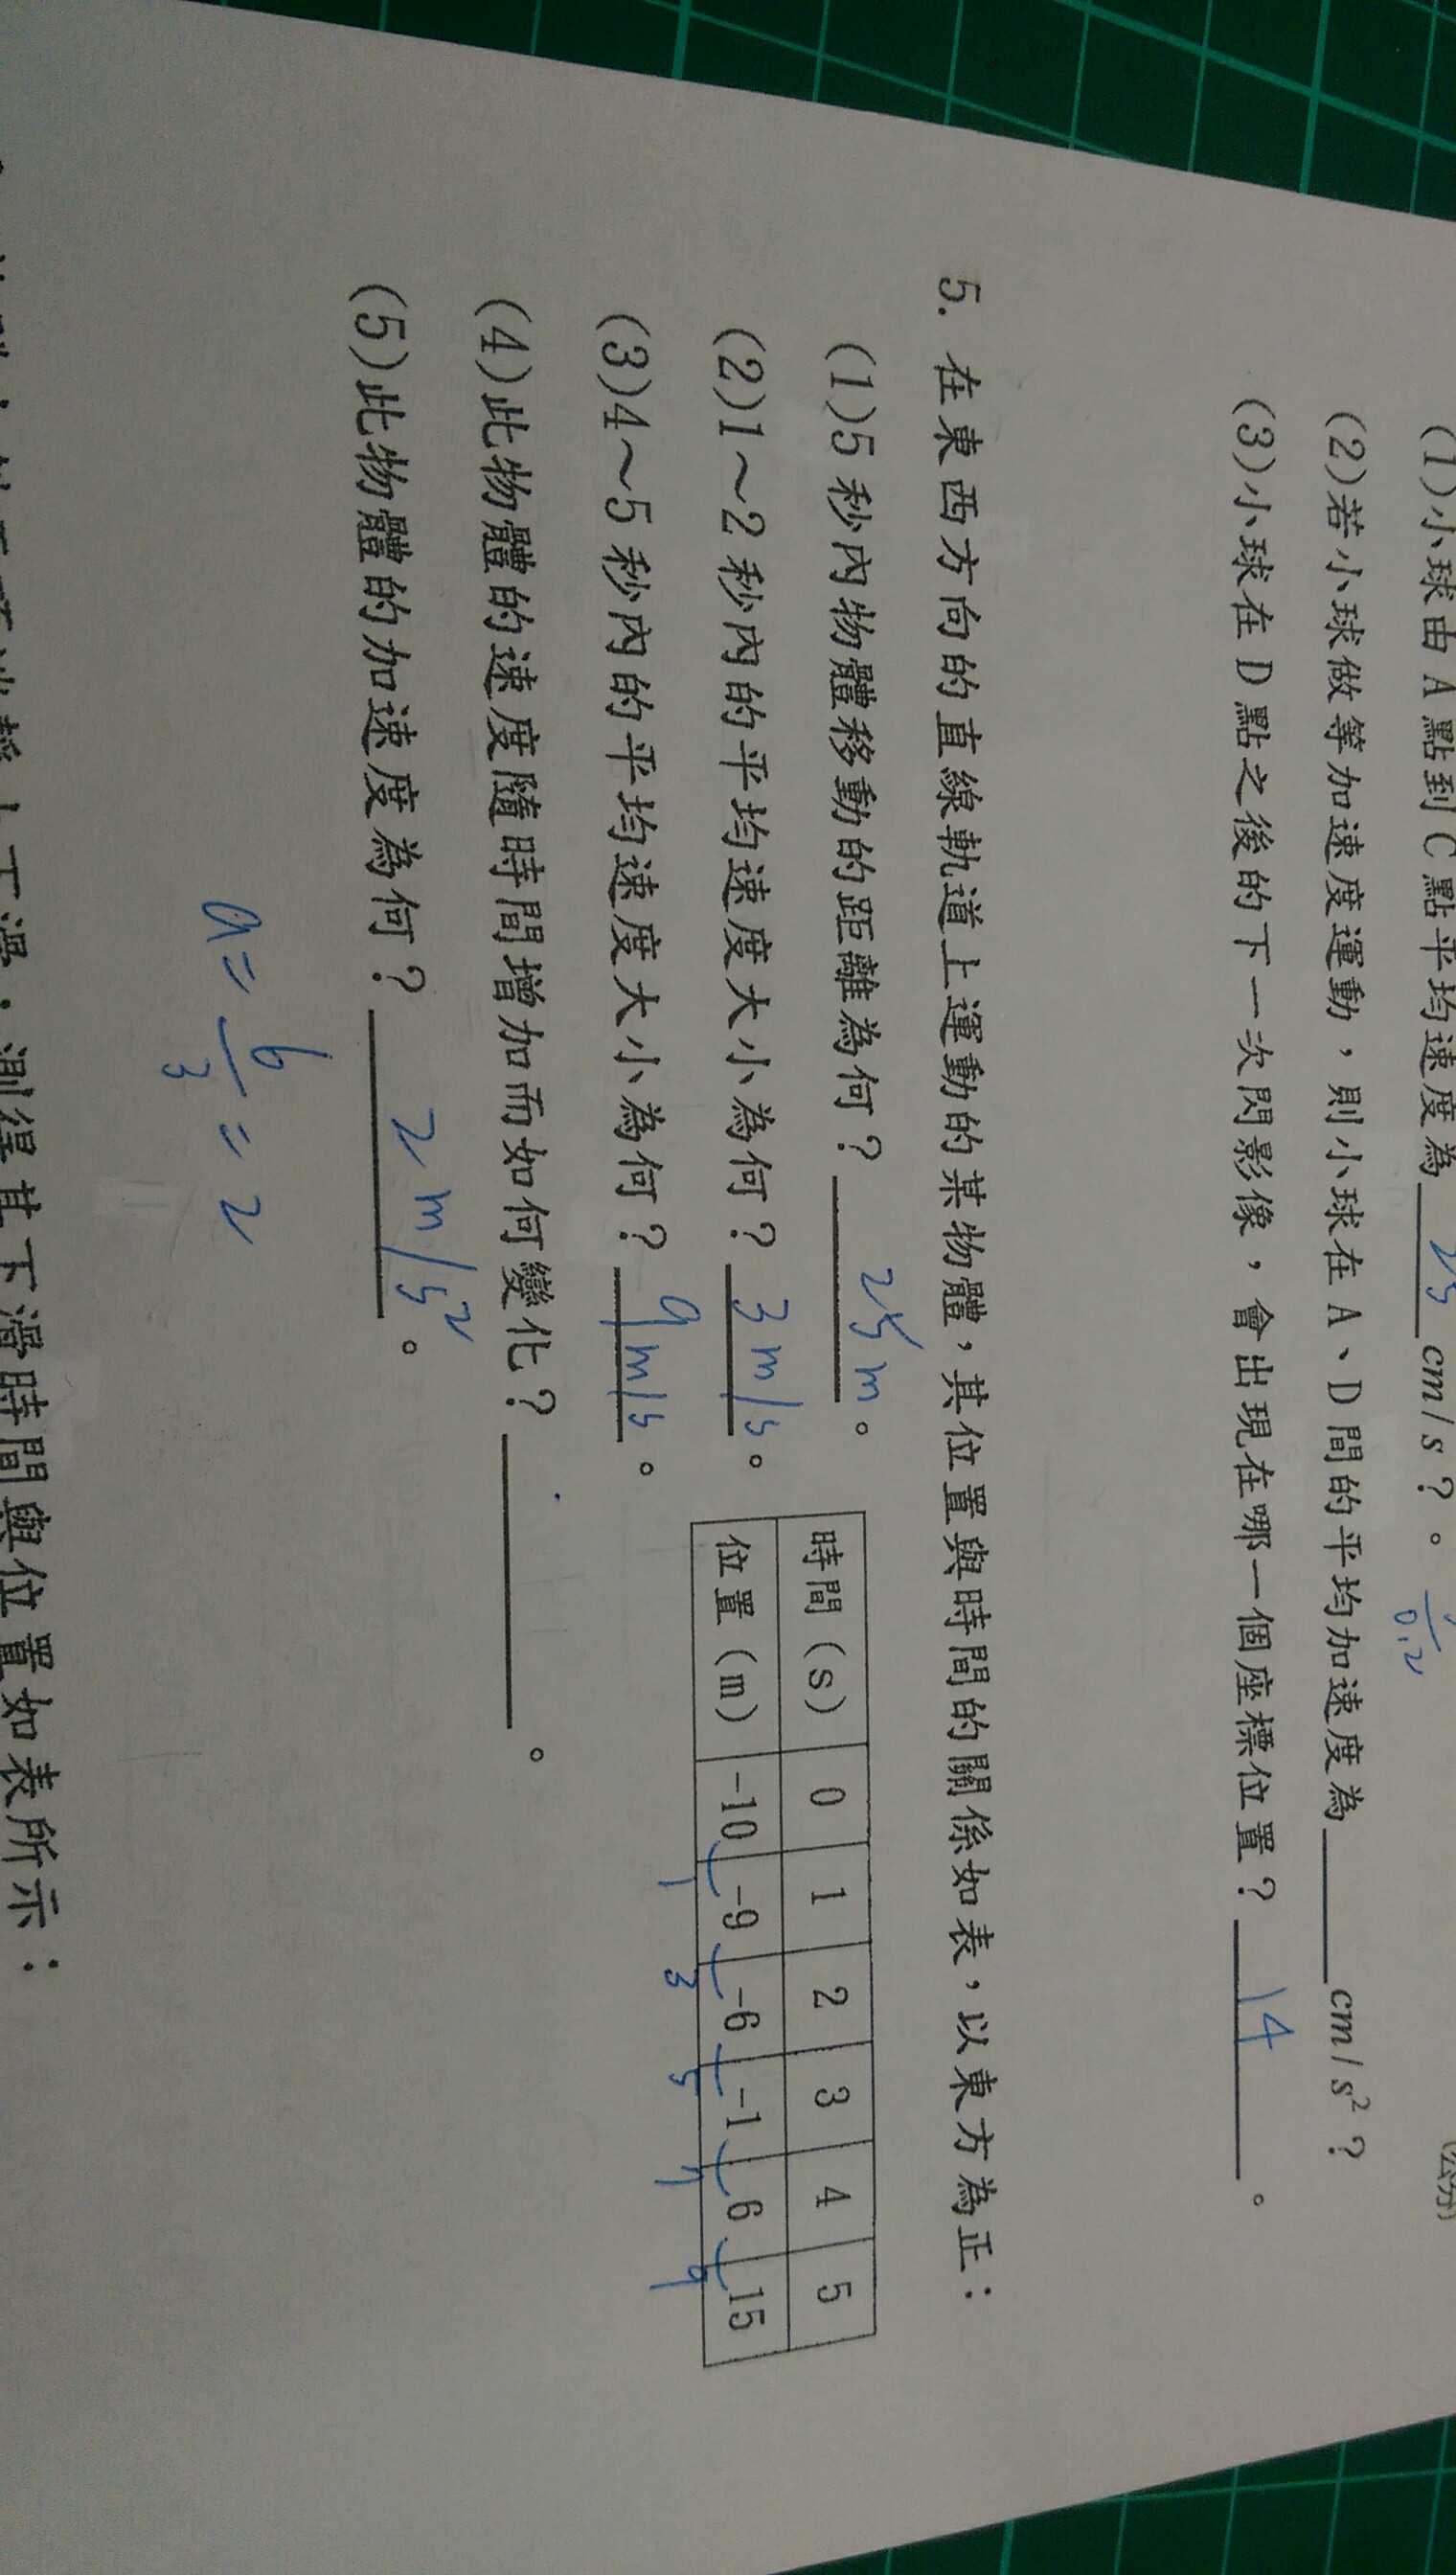 (1)小球由A點到C點平均速度為 25 cm/s？。
0.2
(公分)
(2)若小球做等加速度運動，則小球在A、D間的平均加速度為＿＿＿cm/s²？
(3)小球在D點之後的下一次閃影像，會出現在哪一個座標位置？ 14 。
5. 在東西方向的直線軌道上運動的某物體，其位置與時間的關係如表，以東方為正：
(1)5秒內物體移動的距離為何？ 25 m 。
(2)1～2秒內的平均速度大小為何？ 3 m/s 。
(3)4～5秒內的平均速度大小為何？ 9 m/s 。
時間(s) 0 1 2 3 4 5
位置(m) -10 -9 -6 -1 6 15
1 3 5 7 9
(4)此物體的速度隨時間增加而如何變化？＿＿＿＿＿。
(5)此物體的加速度為何？ 2 m/s² 。
a = 6/3 = 2
測得其下滑時間與位置如表所示：